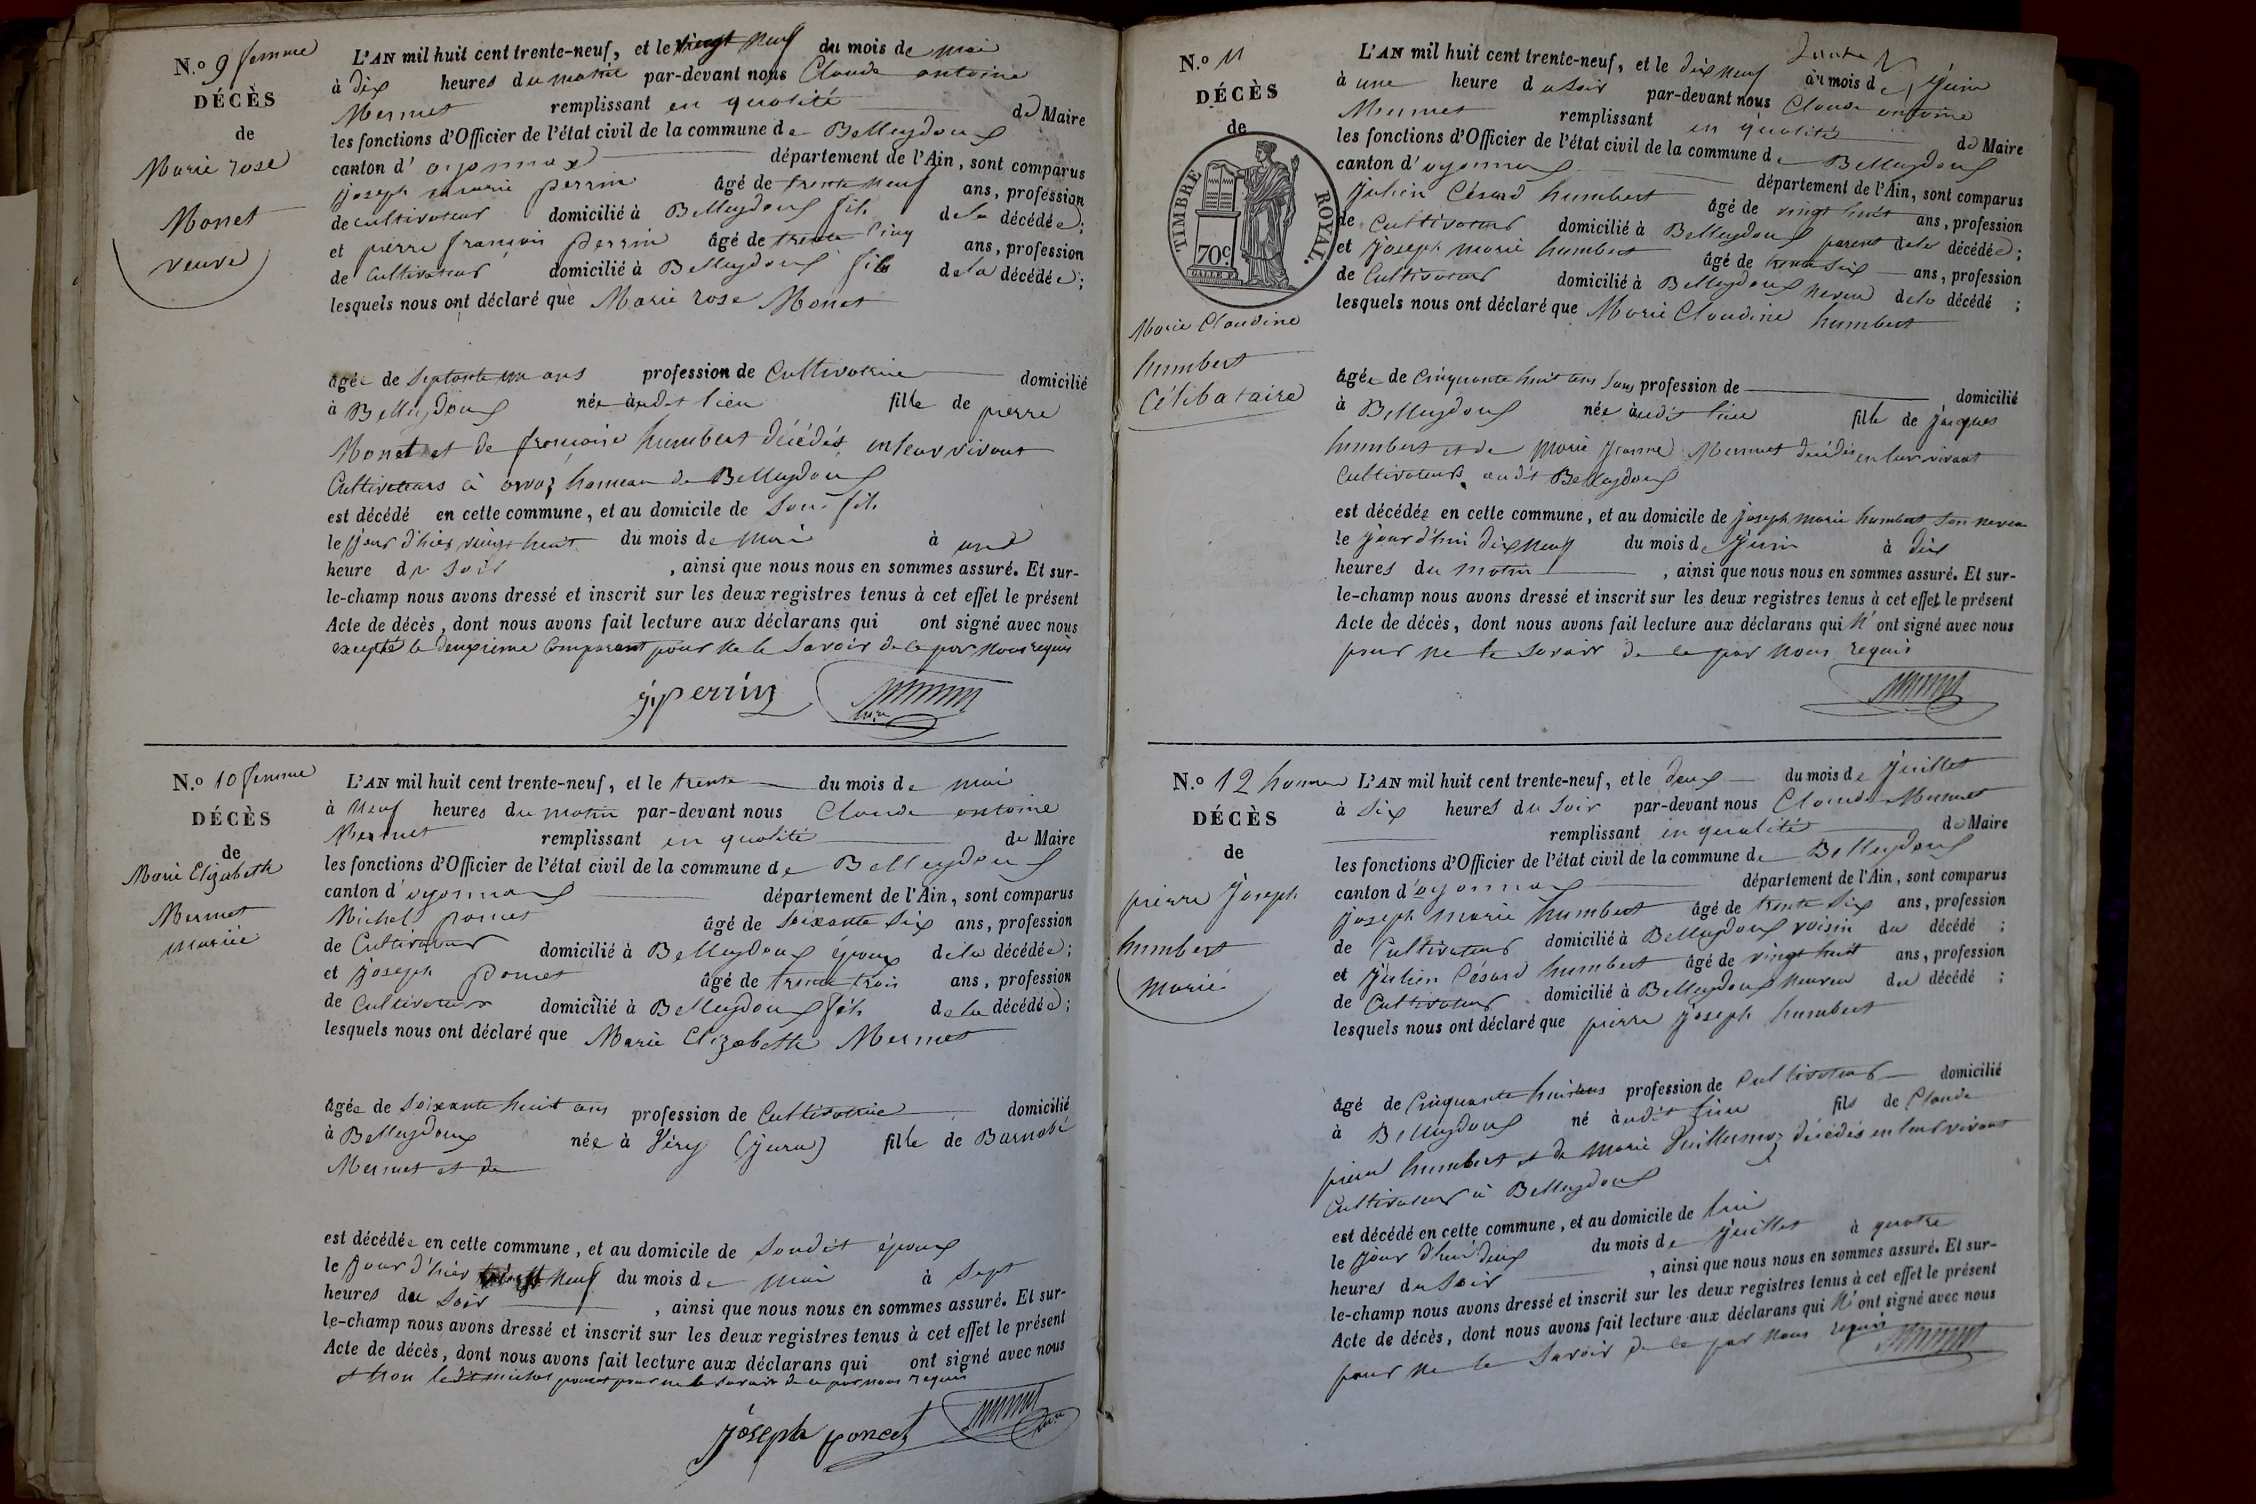 N.o 9 femme
DÉCÈS
de
Marie rose
Monet
veuve
L'AN mil huit cent trente-neuf, et le vingt neuf du mois de mai
à dix heures du matin par-devant nous Claude antoine
Mermet remplissant en qualité de Maire
les fonctions d'Officier de l'état civil de la commune de Belleydoux
canton d'oyonnax département de l'Ain, sont comparus
joseph marie perrin âgé de trente neuf ans, profession
de cultivateur domicilié à Belleydoux fils de la décédée;
et pierre françois perrin âgé de trente cinq ans, profession
de cultivateur domicilié à Belleydoux fils de la décédée;
lesquels nous ont déclaré que Marie rose Monet
âgée de septante un ans profession de Cultivatrice domicilié
à Belleydoux née audit lieu fille de pierre
Monet et de françoise humbert décédés en leur vivant
Cultivateurs à orvaz hameau de Belleydoux
est décédé en cette commune, et au domicile de son fils
le jour d'hier vingt huit du mois de mai à une
heure du soir, ainsi que nous nous en sommes assuré. Et sur-
le-champ nous avons dressé et inscrit sur les deux registres tenus à cet effet le présent
Acte de décès, dont nous avons fait lecture aux déclarans qui ont signé avec nous
excepté le deuxième comparant pour ne le savoir de ce par nous requis
j. perrin
N.o 10 femme
DÉCÈS
de
Marie Elizabeth
Mermet
mariée
L'AN mil huit cent trente-neuf, et le trente du mois de mai
à neuf heures du matin par-devant nous Claude antoine
Mermet remplissant en qualité de Maire
les fonctions d'Officier de l'état civil de la commune de Belleydoux
canton d'oyonnax département de l'Ain, sont comparus
Michel poncet âgé de soixante six ans, profession
de Cultivateur domicilié à Belleydoux époux de la décédée;
et joseph poncet âgé de trente trois ans, profession
de Cultivateur domicilié à Belleydoux fils de la décédée;
lesquels nous ont déclaré que Marie Elizabeth Mermet
âgée de soixante huit ans profession de Cultivatrice domicilié
à Belleydoux née à Véry (jura) fille de Barnabé
Mermet et de
est décédée en cette commune, et au domicile de sondit époux
le jour d'hier vingt neuf du mois de mai à sept
heures du soir, ainsi que nous nous en sommes assuré. Et sur-
le-champ nous avons dressé et inscrit sur les deux registres tenus à cet effet le présent
Acte de décès, dont nous avons fait lecture aux déclarans qui ont signé avec nous
et non ledit michel poncet pour ne le savoir de ce par nous requis
joseph poncet
N.o 11
DÉCÈS
de
TIMBRE ROYAL.
70c.
Marie Claudine
humbert
Célibataire
L'AN mil huit cent trente-neuf, et le dix neuf du mois de juin
à une heure du soir par-devant nous Claude antoine
Mermet remplissant en qualité de Maire
les fonctions d'Officier de l'état civil de la commune de Belleydoux
canton d'oyonnax département de l'Ain, sont comparus
julien Césard humbert âgé de vingt huit ans, profession
de Cultivateur domicilié à Belleydoux parent de la décédée;
et joseph marie humbert âgé de trente six ans, profession
de Cultivateur domicilié à Belleydoux neveu de la décédé;
lesquels nous ont déclaré que Marie Claudine humbert
âgée de cinquante huit ans sans profession de domicilié
à Belleydoux née audit lieu fille de jacques
humbert et de Marie jeanne Mermet décédés en leur vivant
Cultivateurs audit Belleydoux
est décédée en cette commune, et au domicile de joseph marie humbert son neveu
le jour d'hui dix neuf du mois de juin à dix
heures du matin, ainsi que nous nous en sommes assuré. Et sur-
le-champ nous avons dressé et inscrit sur les deux registres tenus à cet effet le présent
Acte de décès, dont nous avons fait lecture aux déclarans qui n'ont signé avec nous
pour ne le savoir de ce par nous requis
N.o 12 homme
DÉCÈS
de
pierre joseph
humbert
marié
L'AN mil huit cent trente-neuf, et le deux du mois de juillet
à six heures du soir par-devant nous Claude Mermet
remplissant en qualité de Maire
les fonctions d'Officier de l'état civil de la commune de Belleydoux
canton d'oyonnax département de l'Ain, sont comparus
joseph marie humbert âgé de trente six ans, profession
de Cultivateur domicilié à Belleydoux voisin du décédé;
et julien Césard humbert âgé de vingt huit ans, profession
de Cultivateur domicilié à Belleydoux neveu du décédé;
lesquels nous ont déclaré que pierre joseph humbert
âgé de cinquante huit ans profession de Cultivateur domicilié
à Belleydoux né audit lieu fils de Claude
pierre humbert et de marie Guillermoz décédés en leur vivant
Cultivateurs à Belleydoux
est décédé en cette commune, et au domicile de lui
le jour d'hui deux du mois de juillet à quatre
heures du soir, ainsi que nous nous en sommes assuré. Et sur-
le-champ nous avons dressé et inscrit sur les deux registres tenus à cet effet le présent
Acte de décès, dont nous avons fait lecture aux déclarans qui n'ont signé avec nous
pour ne le savoir de ce par nous requis